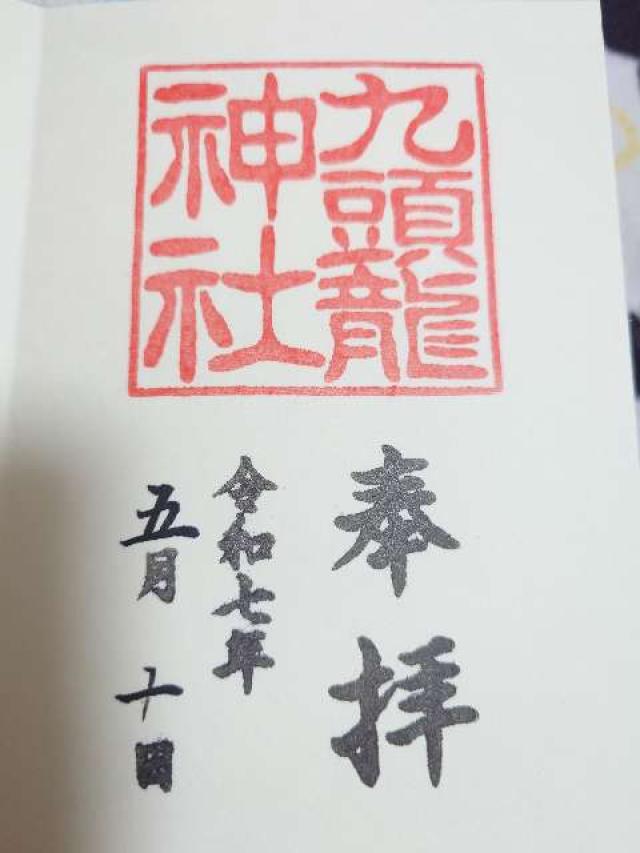 九頭龍
神社
奉拝
令和七年
五月十日